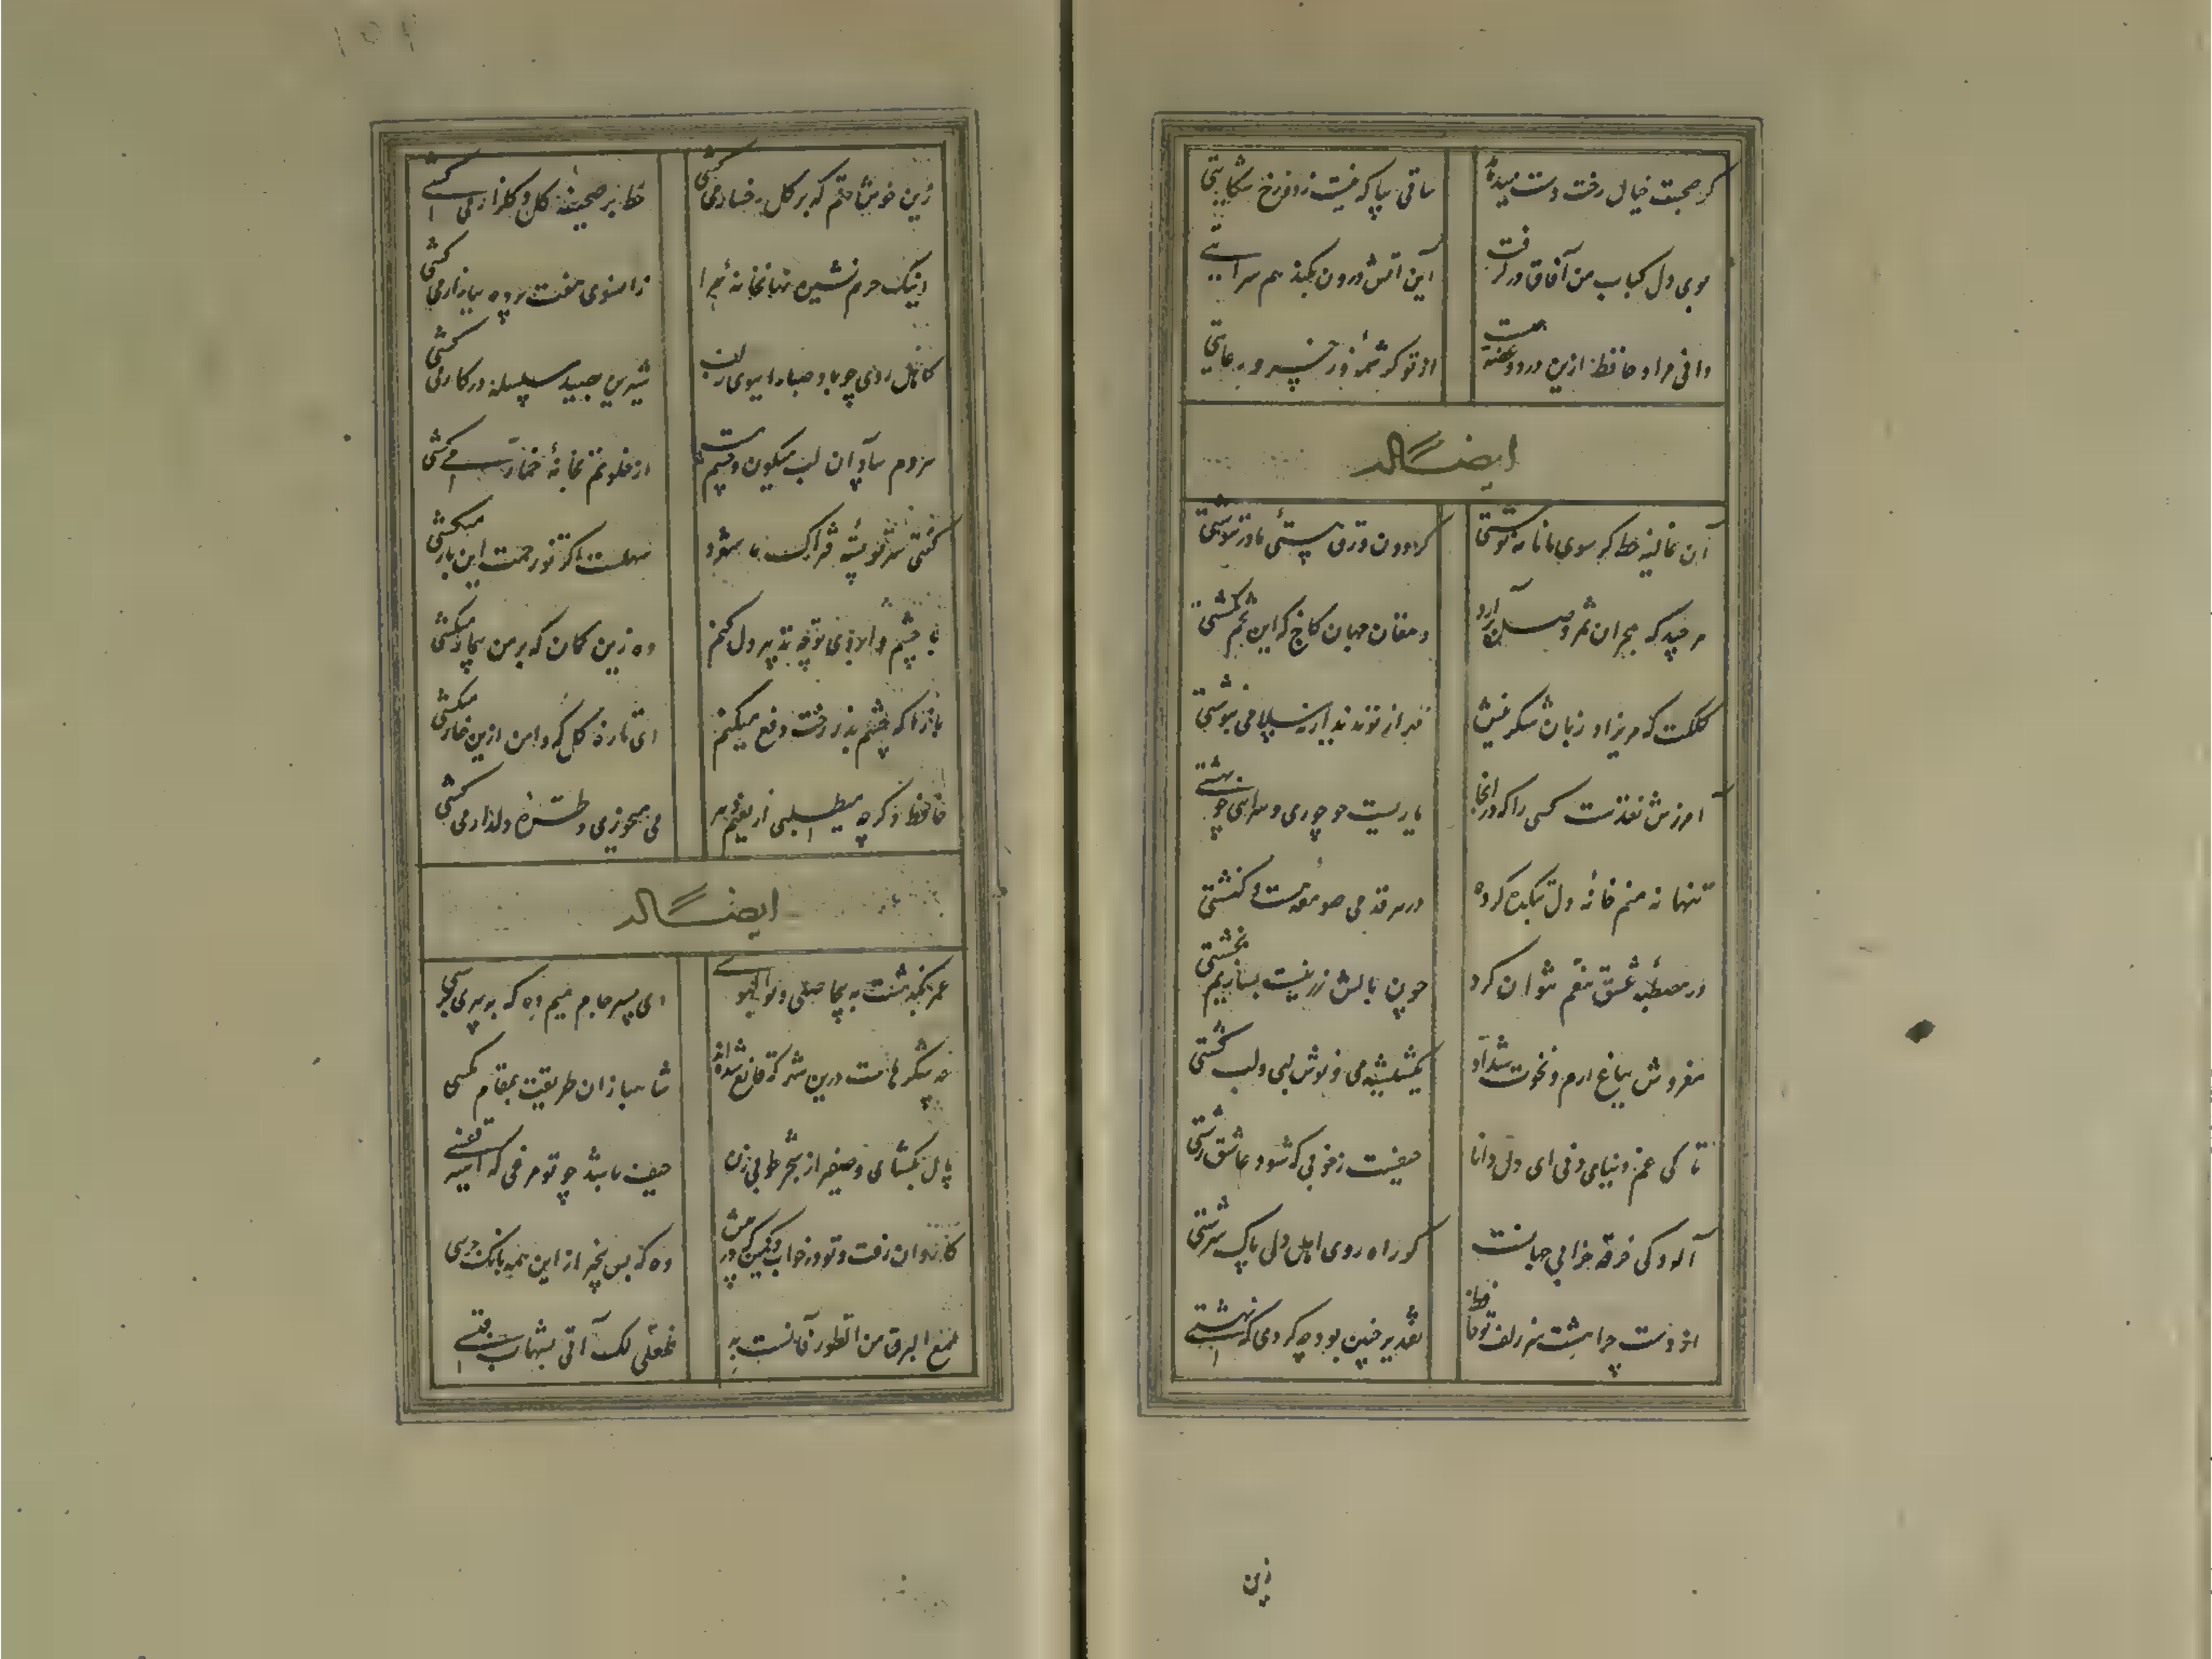 گر صحبت خیال رخت دست میدهد
ساقی بیا که نیست ز دوزخ شکایتی
بوی دل کباب من آفاق در گرفت
این آتش درون بکند هم سرایتی
دانی مراد حافظ ازین درد و غصه چیست
از تو کرشمه و ز خسرو عنایتی
ایضاً له
آن غالیه خط گر سوی ما نامه نوشتی
گردون ورق هستی ما در ننوشتی
هر چند که هجران ثمر وصل برآرد
دهقان جهان کاج که این تخم نکشتی
کلکت که مریزاد زبان شکرینش
آمرزش نقدست کسی را که در اینجا
یاریست چو حوری و سرایی چو بهشتی
تنها نه منم خانه دل بتکده کرده
در هر قدمی صومعه هست و کنشتی
در مصطبه عشق تنعم نتوان کرد
چون بالش زر نیست بسازیم بخشتی
مفروش بباغ ارم و نخوت شداد
یک شیشه می و نوش لبی و لب کشتی
تا کی غم دنیای دنی ای دل دانا
حیفست ز خوبی که شود عاشق زشتی
آلودگی خرقه خرابی جهانست
کو راه روی اهل دلی پاک سرشتی
از دست چرا هشت سر زلف تو حافظ
تقدیر چنین بود چه کردی که نهشتی
زین
زین خوش رقم که بر گل رخسار می‌کشی
خط بر صحیفه گل و گلزار می‌کشی
اشک حرم نشین نهانخانه مرا
زانسوی هفت پرده ببازار می‌کشی
کاهل روی چو باد صبا را ببوی زلف
شیرین بصید سلسله در کار می‌کشی
هر دم بیاد آن لب میگون و چشم مست
از خلوتم بخانه خمار می‌کشی
گفتی سر تو بسته فتراک ما شود
سهلست اگر تو زحمت این بار میکشی
با چشم و ابروی تو چه تدبیر دل کنم
وه زین کمان که بر من بیمار میکشی
باز آ که چشم بد ز رخت دفع میکنم
ای تازه گل که دامن ازین خار میکشی
حافظ دگر چه میطلبی از نعیم دهر
می میخوری و طره دلدار می‌کشی
ایضاً له
عمر بگذشت به بیحاصلی و بوالهوسی
ای پسر جام میم ده که به پیری برسی
چه شکرهاست درین شهر که قانع شده‌اند
شاهبازان طریقت بمقام مگسی
بال بگشای و صفیر از شجر طوبی زن
حیف باشد چو تو مرغی که اسیر قفسی
کاروان رفت و تو در خواب و کمین‌گه در پیش
وه که بس بیخبر از این همه بانگ جرسی
لمع البرق من الطور و آنست به
فلعلی لک آتی بشهاب قبسی